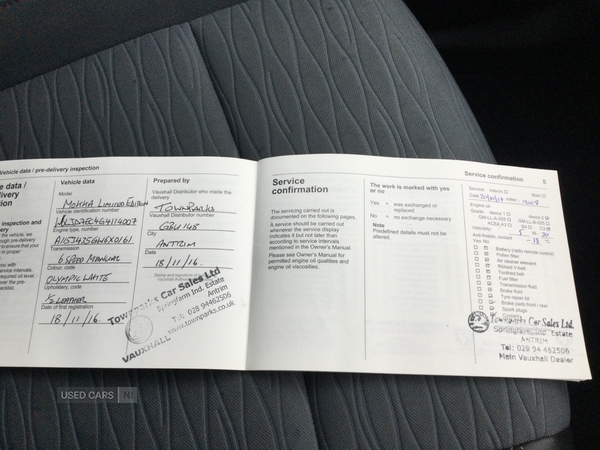 Vehicle data / pre-delivery inspection
Vehicle data
Model
MOKKA LIMITED EDITION
Vehicle identification number
Engine type, number
Transmission
6 SPEED MANUAL
Colour, code
OLYMPIC WHITE
Upholstery, code
1/2 LEATHER
Date of first registration
18/11/16.
Prepared by
Vauxhall Distributor who made the
delivery
TOWNPARKS
Vauxhall Distributor number
GBU148
City
ANTRIM
Date
18/11/16.
Stamp and signature of
Vauxhall
Townparks Car Sales Ltd
Springfarm Ind. Estate
Antrim
Tel: 028 94462506
www.townparks.co.uk
VAUXHALL
Service
confirmation
The servicing carried out is
documented on the following pages.
A service should be carried out
whenever the service display
indicates it but not later than
according to service intervals
mentioned in the Owner's Manual.
Please see Owner's Manual for
permitted engine oil qualities and
engine oil viscosities.
The work is marked with yes
or no
Yes = was exchanged or
replaced
No = no exchange necessary
Note
Predefined details must not be
altered.
Service confirmation 5
Service: Interim New
Date
Engine oil
Grade: dexos 1 dexos 2
Viscosity: 5 30
Anti-freeze, content
Yes No
Battery (radio remote control)
Pollen filter
Air cleaner element
Ribbed V-belt
Toothed belt
Fuel filter
Transmission fluid
Brake fluid
Tyre repair kit
Brake pads front / rear
Spark plugs
Townparks Car Sales Ltd.
Springfarm Ind. Estate
ANTRIM
Tel: 028 94 462506
Main Vauxhall Dealer
USED CARS NI